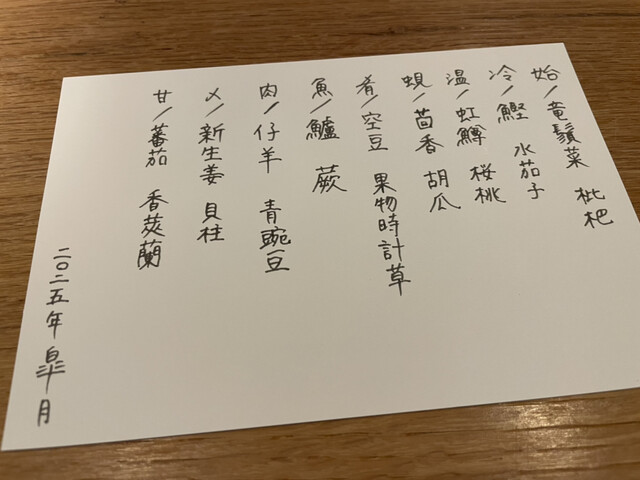 始/竜鬚菜 枇杷
冷/鰹 水茄子
温/虹鱒 桜桃
蜆/茴香 胡瓜
肴/空豆 果物時計草
魚/鱸 蕨
肉/仔羊 青豌豆
〆/新生姜 貝柱
甘/蕃茄 香莢蘭
二〇二五年 皐月